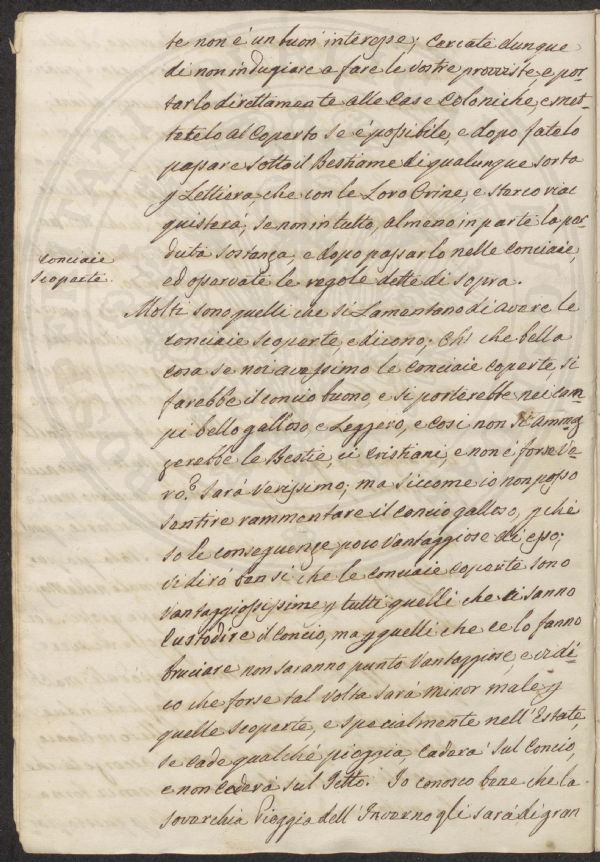 te non é un buon' interesse; Cercate dunque
di non indugiare a fare le vostre provviste, e por-
tarlo direttamente alle Case Coloniche, e met-
tetelo al Coperto se é possibile, e dopo fatelo
passare sotto il Bestiame di qualunque sorta
p Lettiera, che con le Loro Orine, e sterco riac
quisterá, se non in tutto, almeno in parte la per-
duta sostanza, e dopo passarlo nelle Conciaie,
ed osservate le regole dette di sopra.
Conciaie
Scoperte.
Molti sono quelli che si Lamentano di avere le
Conciaie Scoperte, e dicono; Oh! che bella
cosa se noi avessimo le Conciaie coperte, si
farebbe il concio buono, e si porterebbe nei cam-
pi bello galloso e Leggero, e cosi non si amma
zerebbe le Bestie, ei Cristiani, e non é forse ve-
ro? Sará Verissimo; ma siccome io non posso
sentire rammentare il Concio galloso, p ché
so le conseguenze poco Vantaggiose di esso;
vi diró ben sí che le Conciaie coperte sono
Vantaggiosissime p tutti quelli che si sanno
Custodire il Concio, ma p quelli che ce lo fanno
bruciare non saranno punto Vantaggiose, e vi di-
co che forse tal volta sará minor male p
quelle scoperte, e specialmente nell' Estate,
se cade qualché pioggia, Caderá sul Concio,
e non Caderá sul Tetto. Io conosco bene che la
soverchia Pioggia dell' Inverno gli sará di gran